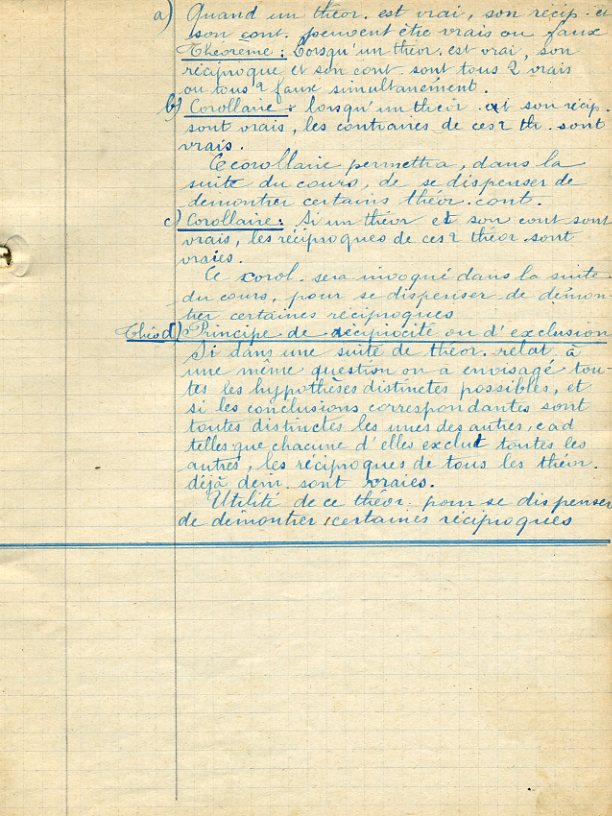 a) Quand un théor. est vrai, son récip. et
son cont. peuvent être vrais ou faux
Théorème : Lorsqu'un théor. est vrai, son
réciproque et son cont. sont tous 2 vrais
ou tous 2 faux simultanément.
b) Corollaire : lorsqu'un théor. et son récip.
sont vrais, les contraires de ces 2 th. sont
vrais.
Ce corollaire permettra, dans la
suite du cours, de se dispenser de
démontrer certains théor. cont.
c) Corollaire : Si un théor et son cont sont
vrais, les réciproques de ces 2 théor. sont
vraies.
Ce corol. sera invoqué dans la suite
du cours, pour se dispenser de démon
trer certaines réciproques
Théo d) Principe de réciprocité ou d'exclusion
Si dans une suite de théor. relat à
une même question on a envisagé tou-
tes les hypothèses distinctes possibles, et
si les conclusions correspondantes sont
toutes distinctes les unes des autres, c à d
telles que chacune d'elles exclut toutes les
autres, les réciproques de tous les théor.
déjà dém. sont vraies.
Utilité de ce théor. pour se dispenser
de démontrer certaines réciproques